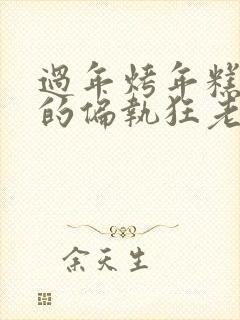 過年烤年糕
的偏執狂老
余天生